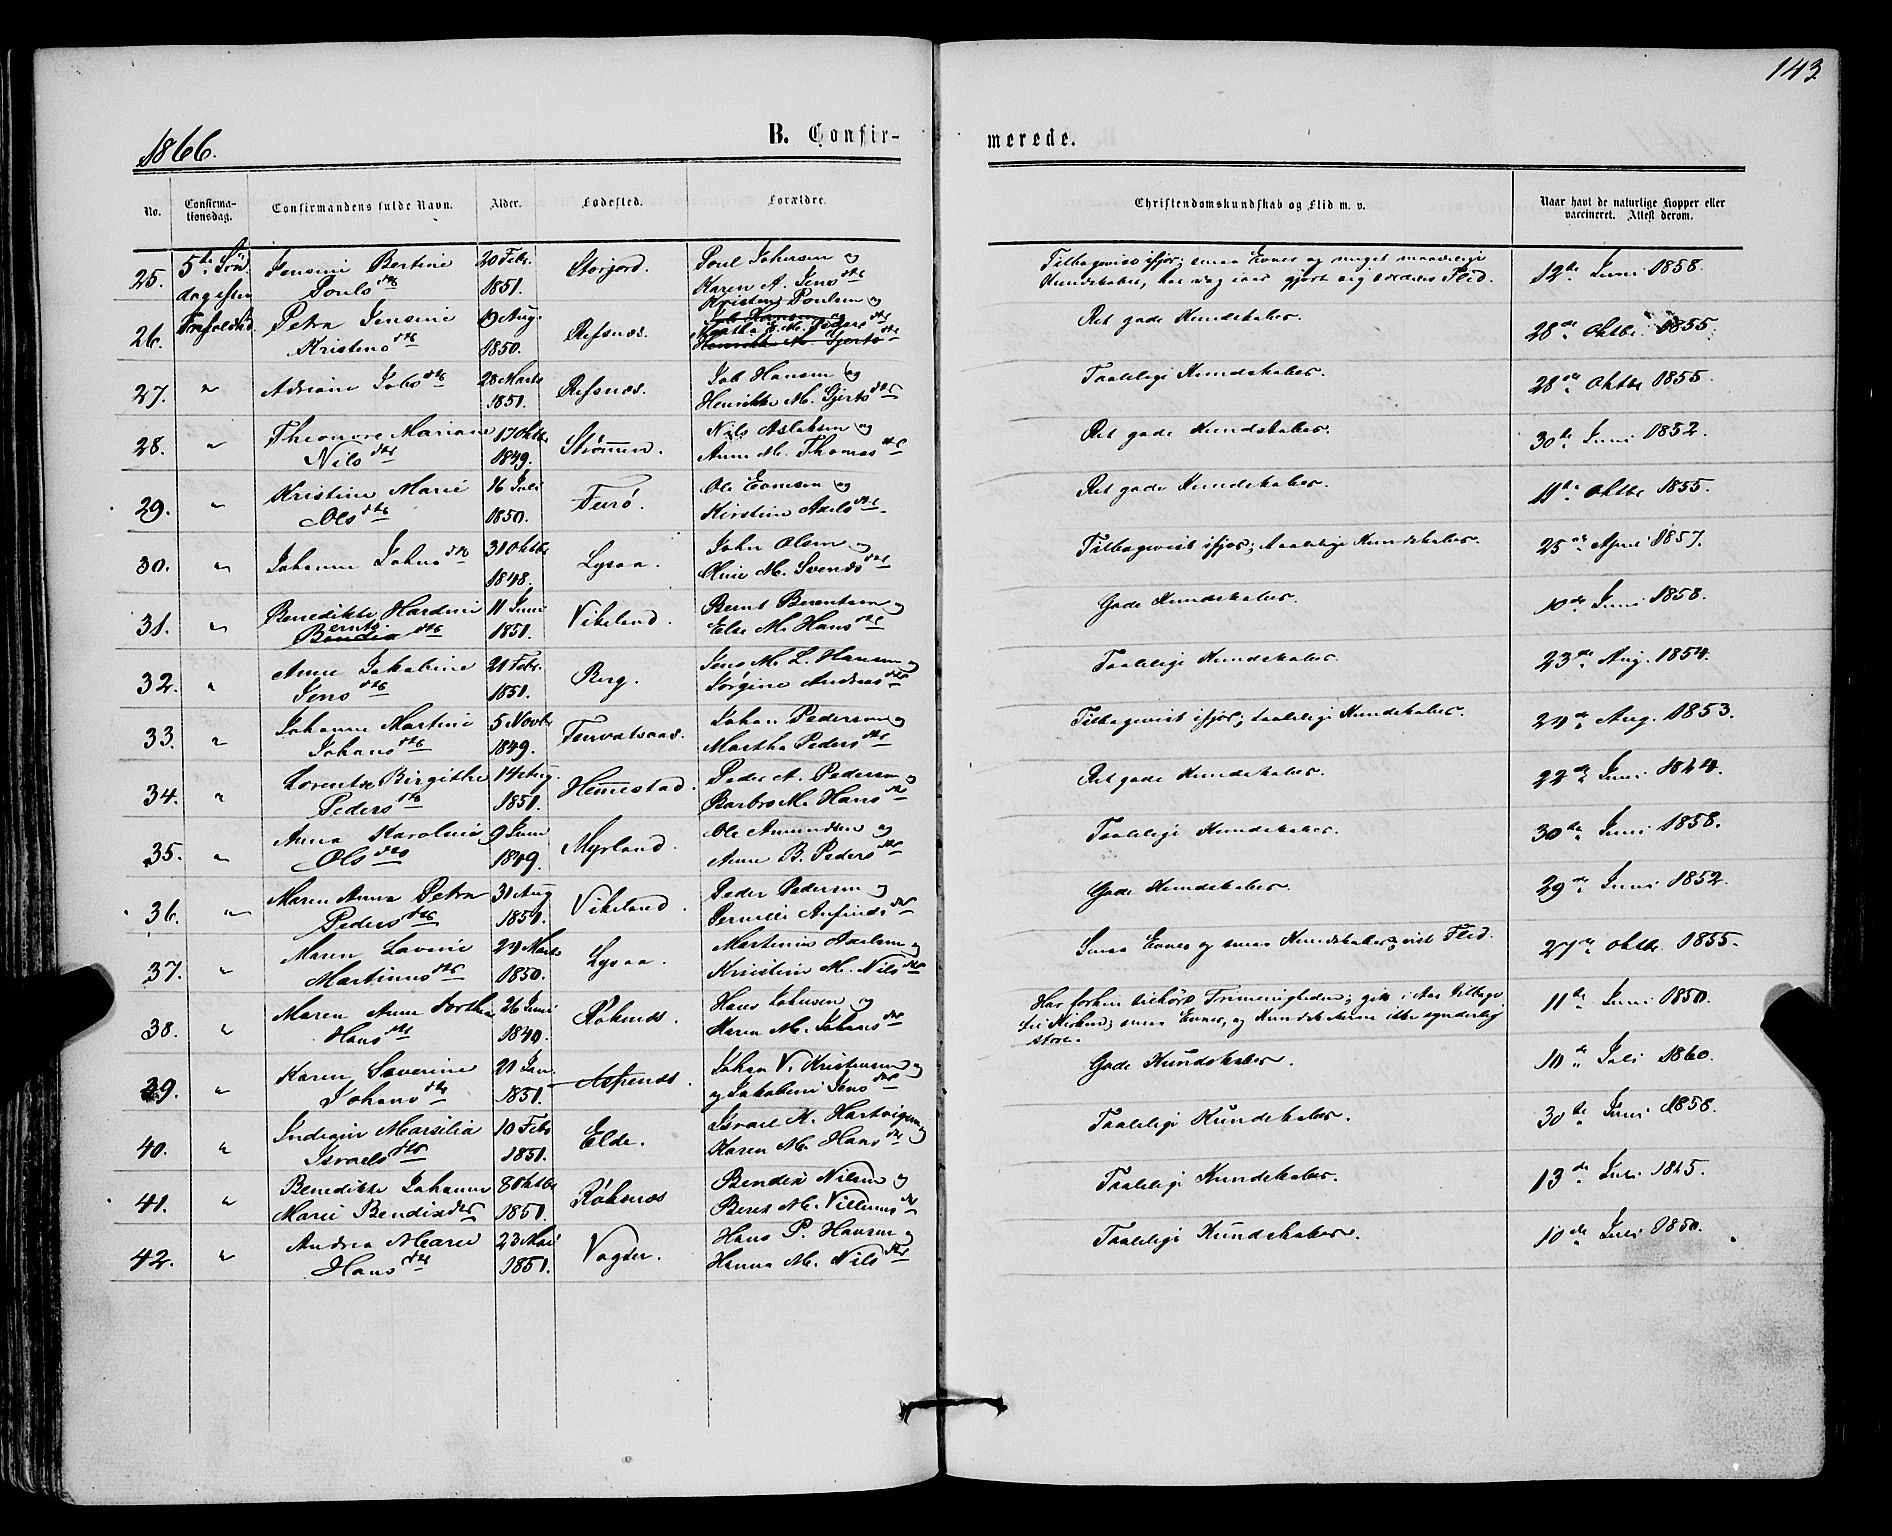 143
1866.
B. Confir-
merede.
No.
Confirma-
tionsdag.
Confirmandens fulde Navn.
Alder.
Fødested.
Forældre.
Christendomskundskab og Flid m. v.
Naar havt de naturlige Kopper eller
vaccineret. Attest derom.
25. 5te Søn Jensine Bertine 20 Febr. Storjord. Poul Johnsen og Tilbagevist ifjor; smaa Evner og meget maadelige 12te Juni 1858.
dag efter Pouls dtr 1851. Karen A. Jens dtr Kundskaber, har dog iaar gjort sig Flid.
26. Trefoldihd. Petra Jensine 19 Aug. Refsnæs. Kristens Poulsen og Ret gode Kundskaber. 28de Oktbr 1855.
Job Hansen og
Kristens dtr 1850. Martha E. M. Peders dtr
Henrikke M. Gjerts dtr
27. " Adriane Jobs dtr 28 Marts Refsnæs. Job Hansen og Taalelige Kundskaber. 28de Oktbr 1855.
1851. Henrikke M. Gjerts dtr
28. " Theonore Mariane 17 Oktbr Strømmen. Nils Aslaksen og Ret gode Kundskaber. 30te Juni 1852.
Nils dtr 1849. Anne M. Thomas dtr
29. " Kristine Marie 16 Juli Furø. Ole Evensen og Ret gode Kundskaber. 11te Oktbr 1855.
Ols dtr 1850. Kirstine Axels dtr
30. " Johanne Johns dtr 31 Oktbr Lysaa. John Olsen og Tilbagevist ifjor; taalelige Kundskaber. 25de April 1857.
1848. Oline M. Svends dtr
31. " Benedikte Hardine 11 Juni Vikeland. Bernt Berentsen og Gode Kundskaber. 10de Juni 1858.
Bernts dtr 1851. Else M. Hans dtr
32. " Anne Jakobine 21 Febr. Berg. Jens M. L. Hansen og Taalelige Kundskaber. 23de Aug. 1854.
Jens dtr 1851. Jørgine Andreas dtr
33. " Johanne Martine 5 Novbr Johan Pedersen og Tilbagevist ifjor; taalelige Kundskaber. 24de Aug. 1853.
Johans dtr 1849. Martha Peders dtr
34. " Lorentse Birgithe 14 Aug. Hemmestad. Peder A. Pedersen og Ret gode Kundskaber. 22de Juni
Peders dtr 1851. Barbro M. Hans dtr
35. " Anna Karoline 9 Juni Myrland. Ole Amundsen og Taalelige Kundskaber. 30te Juni 1858.
Ols dtr 1849. Anne B. Peders dtr
36. " Maren Anna Petra 31 Aug Vikeland. Peder Pedersen og Gode Kundskaber 29de Juni 1852.
Peders dtr 1851. Pernille Anfinds dtr
37. " Maren Lavine 24 Marts Lysaa. Martinus Axelsen og Smaa Evner og smaa Kundskaber; vist Flid. 27de Oktbr. 1855.
Martinus dtr 1850. Kristine M. Nils dtr
38. " Maren Anne Dorthea 26 Juni Røknæs. Hans Johnsen og Har forhen tilhørt Frimenigheden; gik i Aar tilbage 11te Juni 1850.
Hans dtr 1849. Karen M. Johans dtr til Kirken; smaa Evner, og Kundskaberne ikke synderlig
store.
39. " Karen Severine 21 Jan. Aspenæs. Johan V. Kristensen og Gode Kundskaber. 10de Juli 1860.
Johans dtr 1851. og Jakobine Jens dtr
40. " Indigin Marsilia 10 Febr Elde. Israel K. Hartvigsen og Taalelige Kundskaber. 30te Juni 1858.
Israels dtr 1851. Karen M. Hans dtr
41. " Benedikte Johanne 8 Oktbr Røknæs Bendix Nilsen og Taalelige Kundskaber. 13de Juli
Marie Bendixdtr 1850. Beret M. Villums dtr
42. " Andrea Marie 23 Mai Hans P. Hansen og Taalelige Kundskaber. 10de Juli 1850.
Hans dtr 1851. Hanna M. Nils dtr